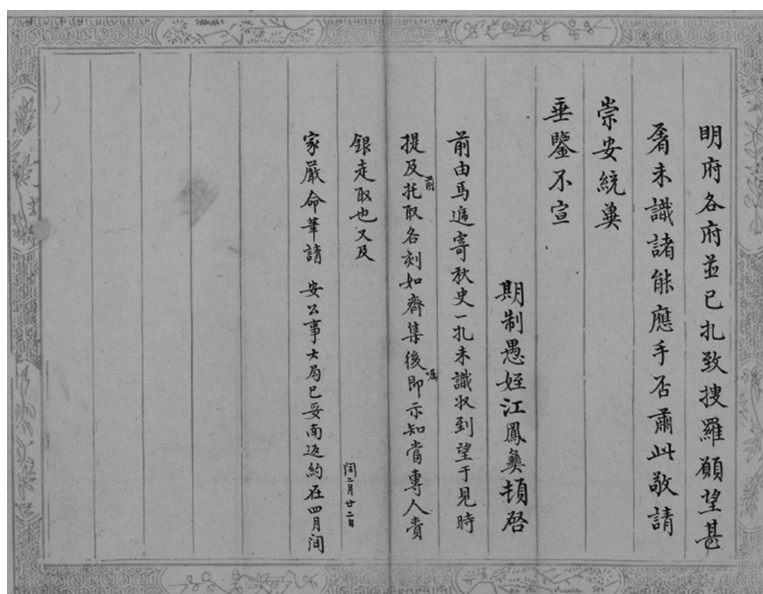 明府各府並已扎致搜羅願望甚
奢未識諸能應手否肅此敬請
崇安統冀
垂鑒不宣
期制愚姪江鳳彝頓啓
前由馬遞寄秋史一扎未識收到望于見時
提及前托取各刻如齊集後即示知當專人賫
銀走取也又及
家嚴命筆請 安公事大局已妥南返約在四月间
闰二月廿二日